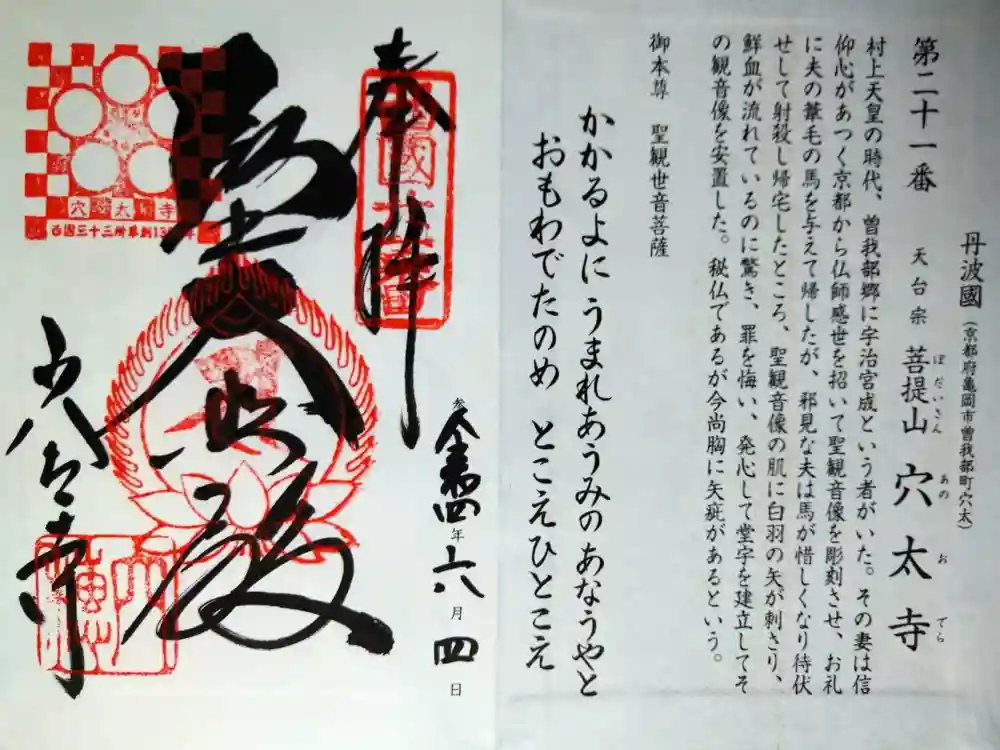 第二十一番
丹波國(京都府亀岡市曽我部町穴太)
天台宗 菩提山 穴太寺
ぼだいさん あのおでら
村上天皇の時代、曽我部郷に宇治宮成という者がいた。その妻は信
仰心があつく京都から仏師感世を招いて聖観音像を彫刻させ、お礼
に夫の葦毛の馬を与えて帰したが、邪見な夫は馬が惜しくなり待伏
せして射殺し帰宅したところ、聖観音像の肌に白羽の矢が刺さり、
鮮血が流れているのに驚き、罪を悔い、発心して堂宇を建立してそ
の観音像を安置した。秘仏であるが今尚胸に矢疵があるという。
御本尊 聖観世音菩薩
かかるよに うまれあうみのあなうやと
おもわでたのめ とこえひとこえ
奉拝
年六月四日
聖大悲殿
穴太寺
穴太寺